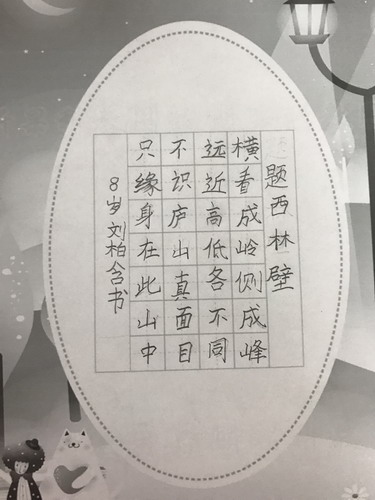 题西林壁
横看成岭侧成峰
远近高低各不同
不识庐山真面目
只缘身在此山中
8岁刘柏含书